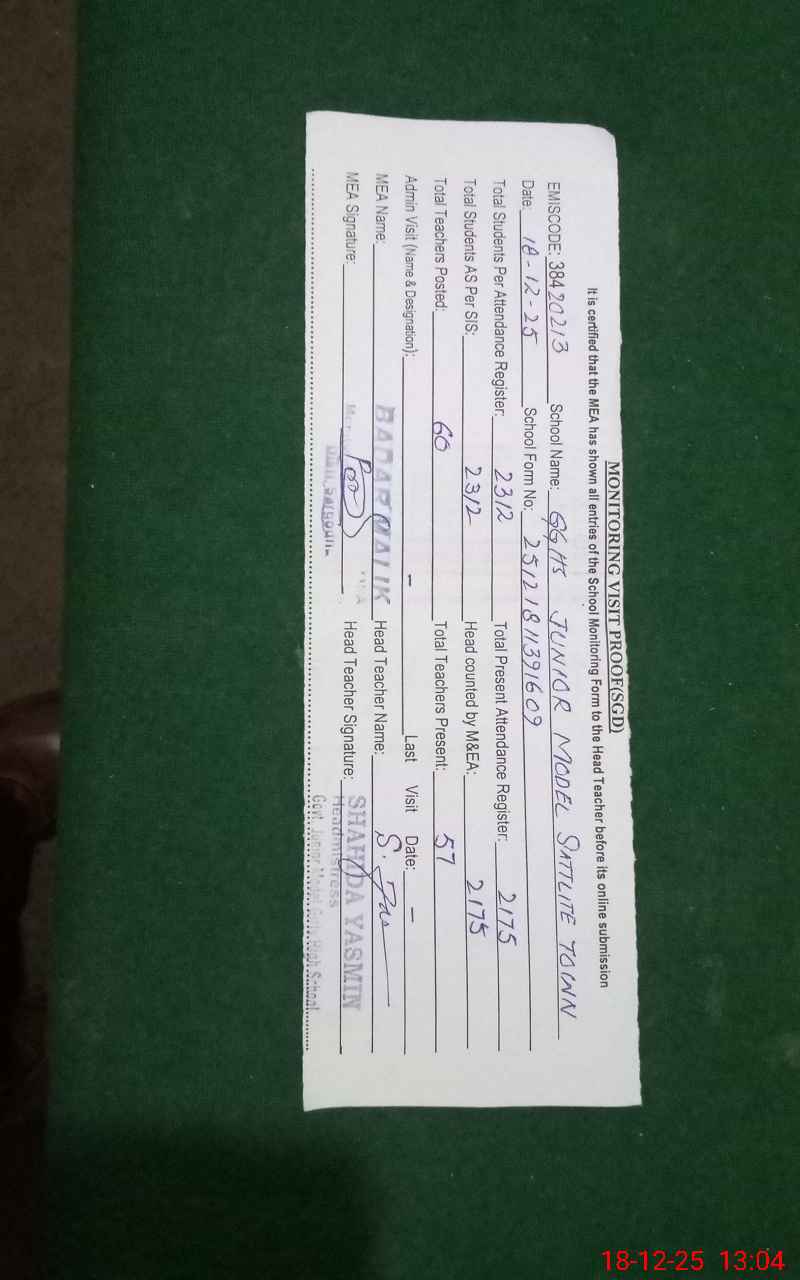 MONITORING VISIT PROOF(SGD)
It is certified that the MEA has shown all entries of the School Monitoring Form to the Head Teacher before its online submission
EMISCODE: 38420213 School Name: GGHS JUNIOR MODEL SATTLITE TOWN
Date. 18-12-25 School Form No. 25121811391609
Total Students Per Attendance Register. 2312 Total Present Attendance Register: 2175
Total Students AS Per SIS: 2312 Head counted by M&EA: 2175
Total Teachers Posted: 60 Total Teachers Present: 57
Admin Visit (Name & Designation): – Last Visit Date: –
MEA Name: BADAR MALIK Head Teacher Name:
MEA Signature: Head Teacher Signature: SHAHIDA YASMIN
Headmistress
Govt. Junior Model Girls High School
18-12-25 13:04